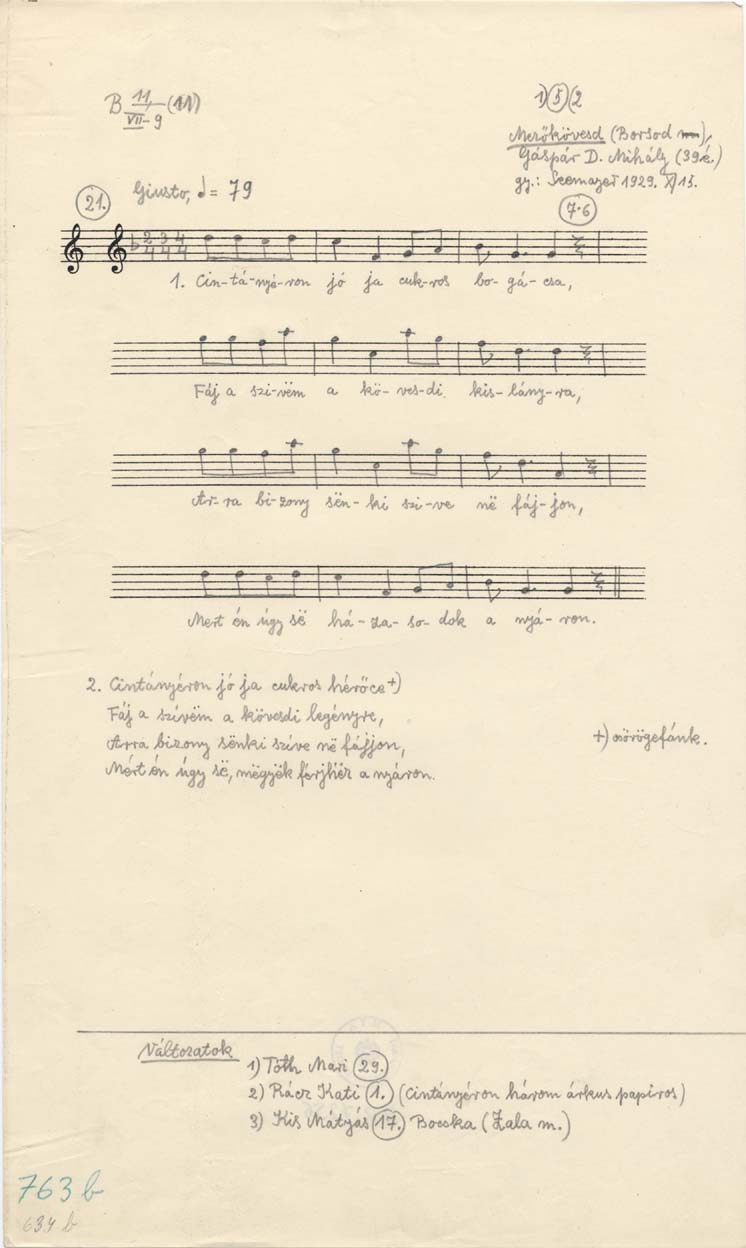 B 11/VII-9 (11)
1) 5 (2
Mezőkövesd (Borsod m),
Gáspár D. Mihály (39é.)
gy.: Seemayer 1929. X/13.
21.
Giusto, = 79
7·6
2 3 4
4 4 4
1. Cin-tá-nyá-ron jó ja cuk-ros bo-gá-csa,
Fáj a szi-vëm a kö-ves-di kis-lány-ra,
Ar-ra bi-zony sën-ki szi-ve në fáj-jon,
Mert én úgy së há-za-so-dok a nyá-ron.
2. Cintányéron jó ja cukros hérőce +)
Fáj a szívëm a kövesdi legényre,
Arra bizony sënki szíve në fájjon,
+) csörögefánk.
Mért én úgy së, mëgyëk férjhëz a nyáron.
Változatok
1) Tóth Mari 29.
2) Rácz Kati 1. (Cintányéron három árkus papiros)
3) Kis Mátyás 17. Bocska (Zala m.)
763 b
634 b